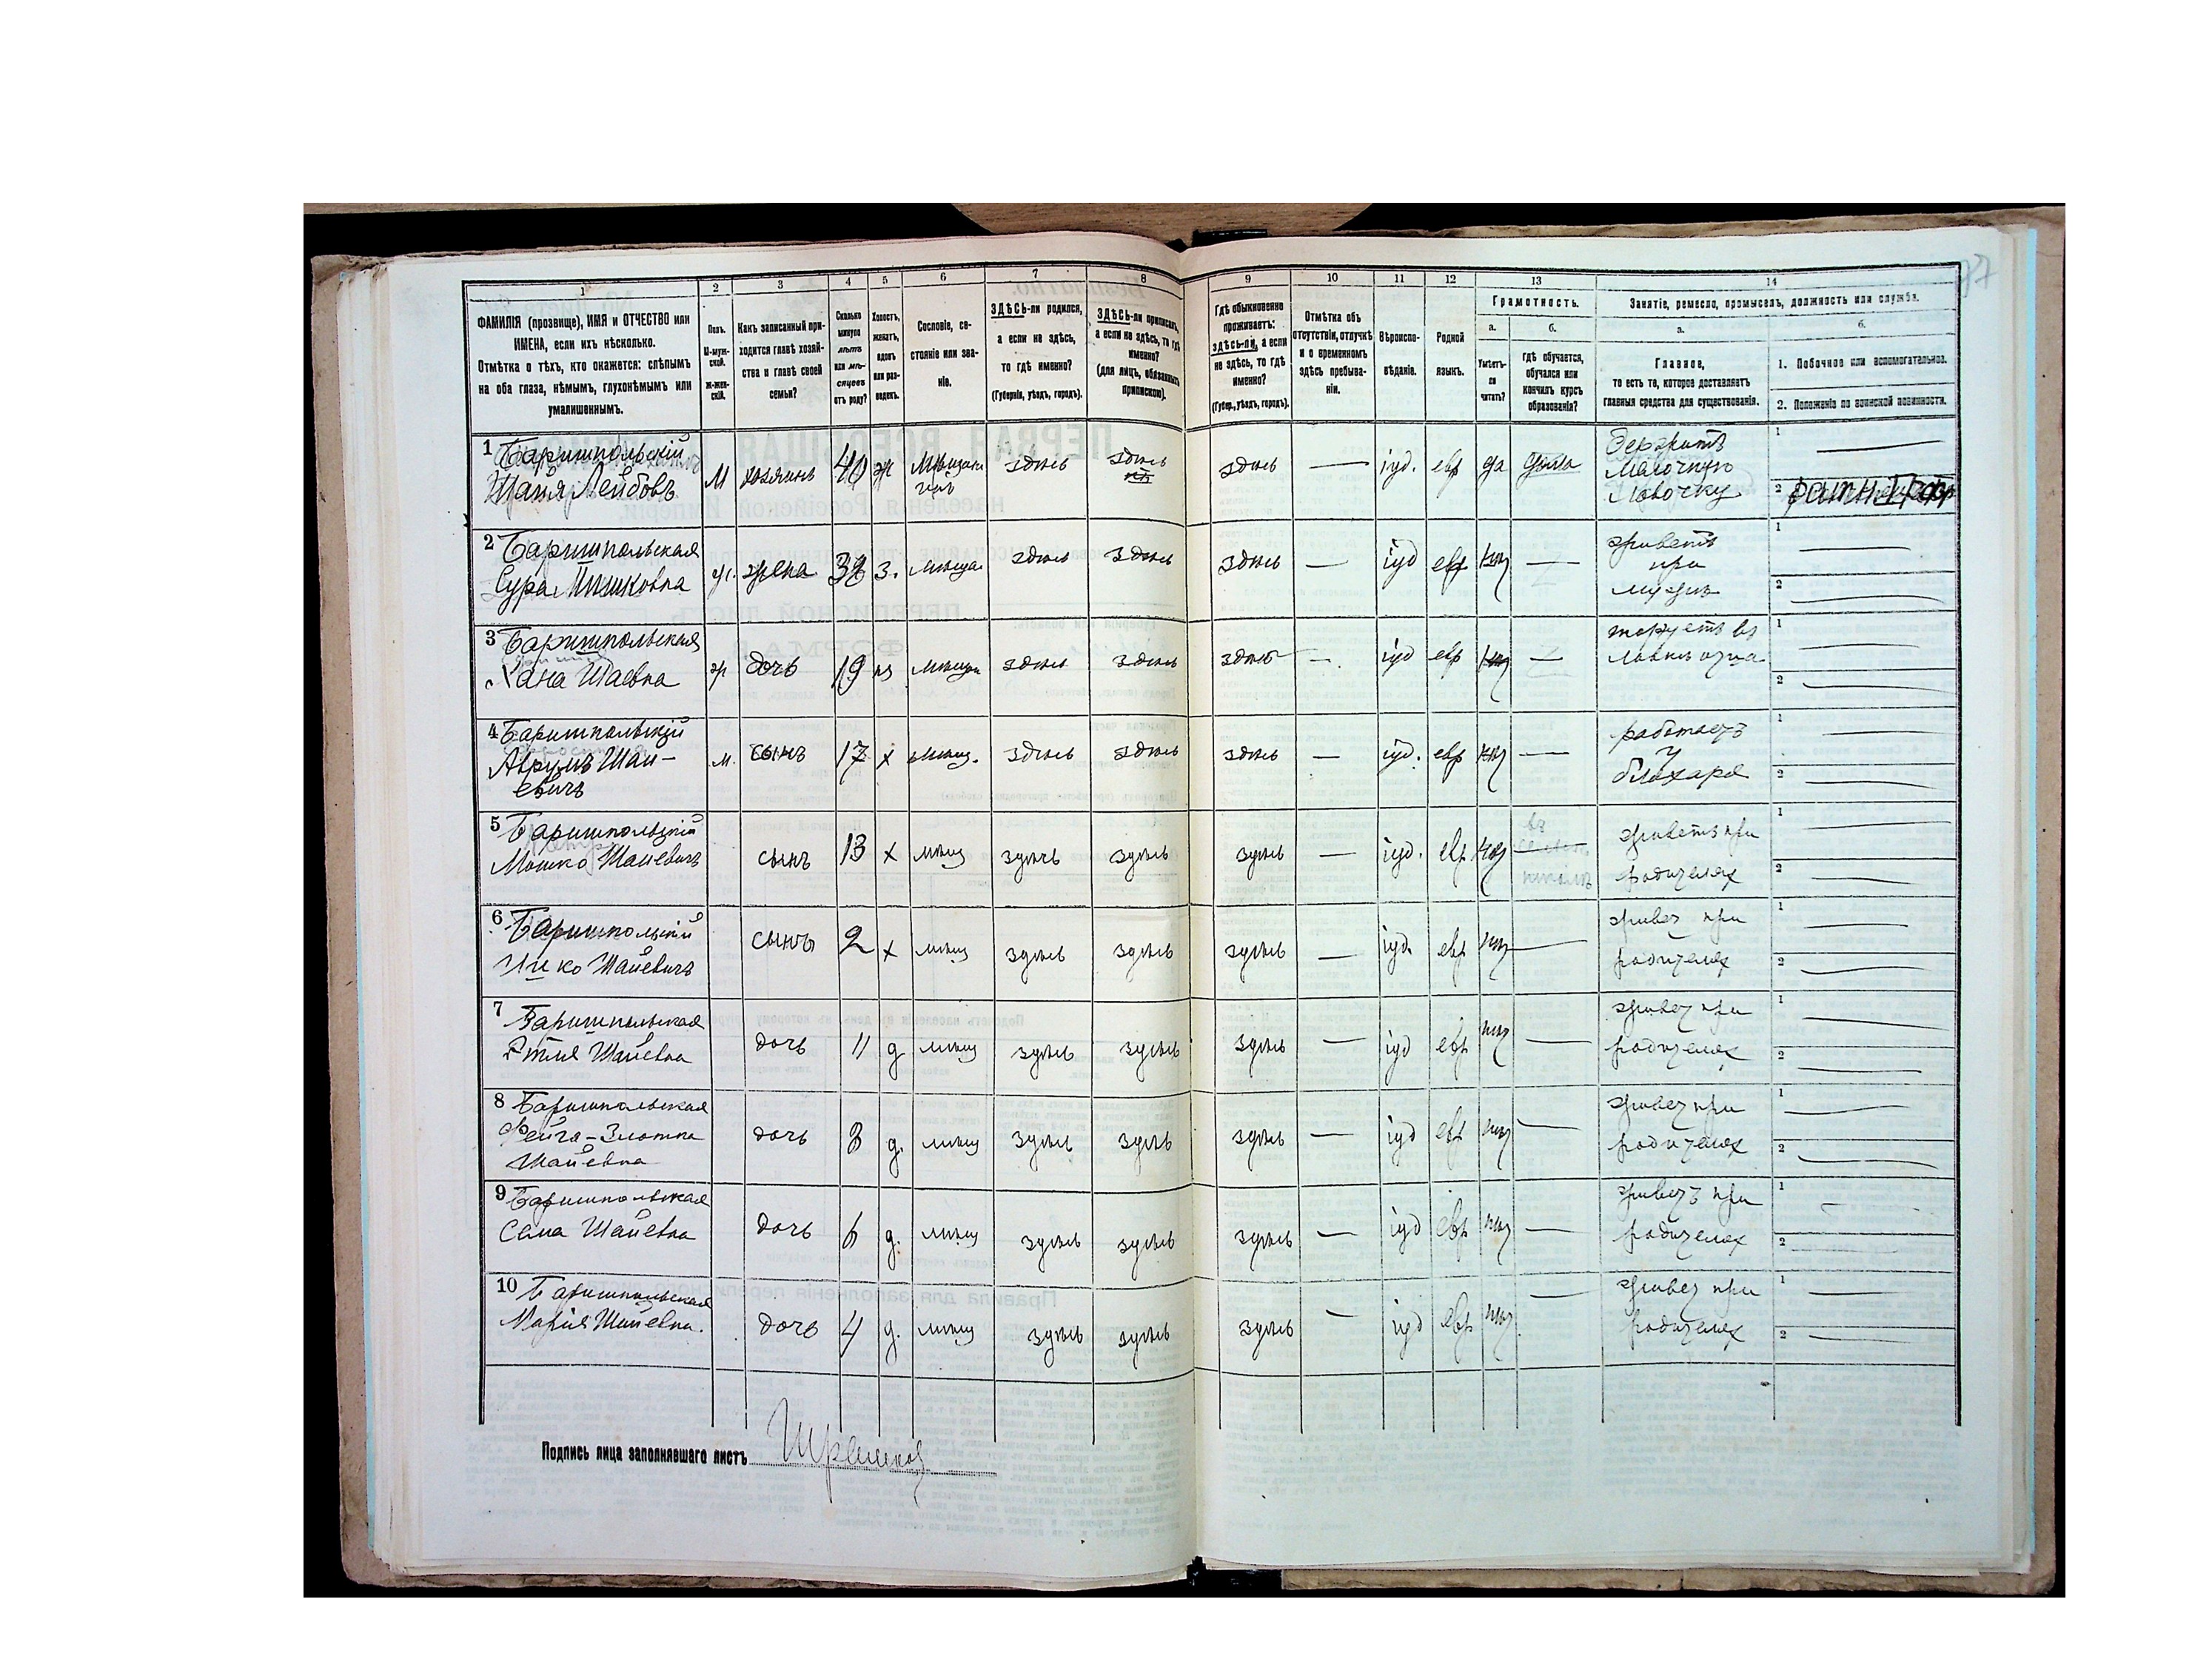 97
1 2 3 4 5 6 7 8 9 10 11 12 13 14
ФАМИЛІЯ (прозвище), ИМЯ и ОТЧЕСТВО или
ИМЕНА, если ихъ нѣсколько.
Отмѣтка о тѣхъ, кто окажется: слѣпымъ
на оба глаза, нѣмымъ, глухонѣмымъ или
умалишеннымъ.
Полъ.
М-муж-
ской.
Ж-жен-
скій.
Какъ записанный при-
ходится главѣ хозяй-
ства и главѣ своей
семьи?
Сколько
минуло
лѣтъ
или мѣ-
сяцевъ
отъ роду?
Холостъ,
женатъ,
вдовъ
или раз-
веденъ.
Сословіе, со-
стояніе или зва-
ніе.
ЗДѢСЬ-ли родился,
а если не здѣсь,
то гдѣ именно?
(Губернія, уѣздъ, городъ).
ЗДѢСЬ-ли приписанъ,
а если не здѣсь, то гдѣ
именно?
(для лицъ, обязанныхъ
припискою).
Гдѣ обыкновенно
проживаетъ:
здѣсь-ли, а если
не здѣсь, то гдѣ
именно?
(Губер., уѣздъ, городъ).
Отмѣтка объ
отсутствіи, отлучкѣ
и о временномъ
здѣсь пребыва-
ніи.
Вѣроиспо-
вѣданіе.
Родной
языкъ.
Грамотность.
а.
Умѣетъ-
ли
читать?
б.
гдѣ обучается,
обучался или
кончилъ курсъ
образованія?
Занятіе, ремесло, промыселъ, должность или служба.
а.
Главное,
то есть то, которое доставляетъ
главныя средства для существованія.
б.
1. Побочное или вспомогательное.
2. Положеніе по воинской повинности.
1 Баришпольскій
Шаія Лейбовъ
М хозяинъ 40 ж здѣсь здѣсь здѣсь — іуд. евр да
держитъ
мелочную
лавочку
1 —
2
2 Баришпольская
Сура Ицковна
ж. жена з. здѣсь здѣсь здѣсь — іуд евр нѣт —
живетъ
при
мужѣ
1 —
2 —
3 Баришпольская
Хана Шаевна
ж дочь 19 здѣсь здѣсь здѣсь — іуд евр нѣт —
торгуетъ въ
лавкѣ отца
1 —
2 —
4 Баришпольскій
Аврумъ Шаи-
евичъ
м. сынъ 17 х мѣщ. здѣсь здѣсь здѣсь — іуд. евр нѣт —
работаетъ
у
бляхаря
1 —
2 —
5 Баришпольскій
Мошко Шаиевичъ
сынъ 13 х мѣщ здѣсь здѣсь здѣсь — іуд. евр нѣт —
живетъ при
родителях
1 —
2 —
6 Баришпольскій
Ицко Шаиевичъ
сынъ 2 х мѣщ здѣсь здѣсь здѣсь — іуд. евр нѣт —
живет при
родителях
1 —
2 —
7 Баришпольская
Этля Шаиевна
дочь 11 д мѣщ здѣсь здѣсь здѣсь — іуд евр нѣт —
живет при
родителях
1 —
2 —
8 Баришпольская
Фейга-Злотка
Шаиевна
дочь 8 д. мѣщ здѣсь здѣсь здѣсь — іуд евр нѣт —
живет при
родителях
1 —
2 —
9 Баришпольская
Шаиевна
дочь 6 д. мѣщ здѣсь здѣсь здѣсь — іуд евр нѣт —
живетъ при
родителях
1 —
2 —
10 Баришпольская
Марія Шаиевна.
дочь 4 д. мѣщ здѣсь здѣсь здѣсь — іуд евр нѣт —
живет при
родителях
1 —
2 —
Подпись лица заполнявшаго листъ